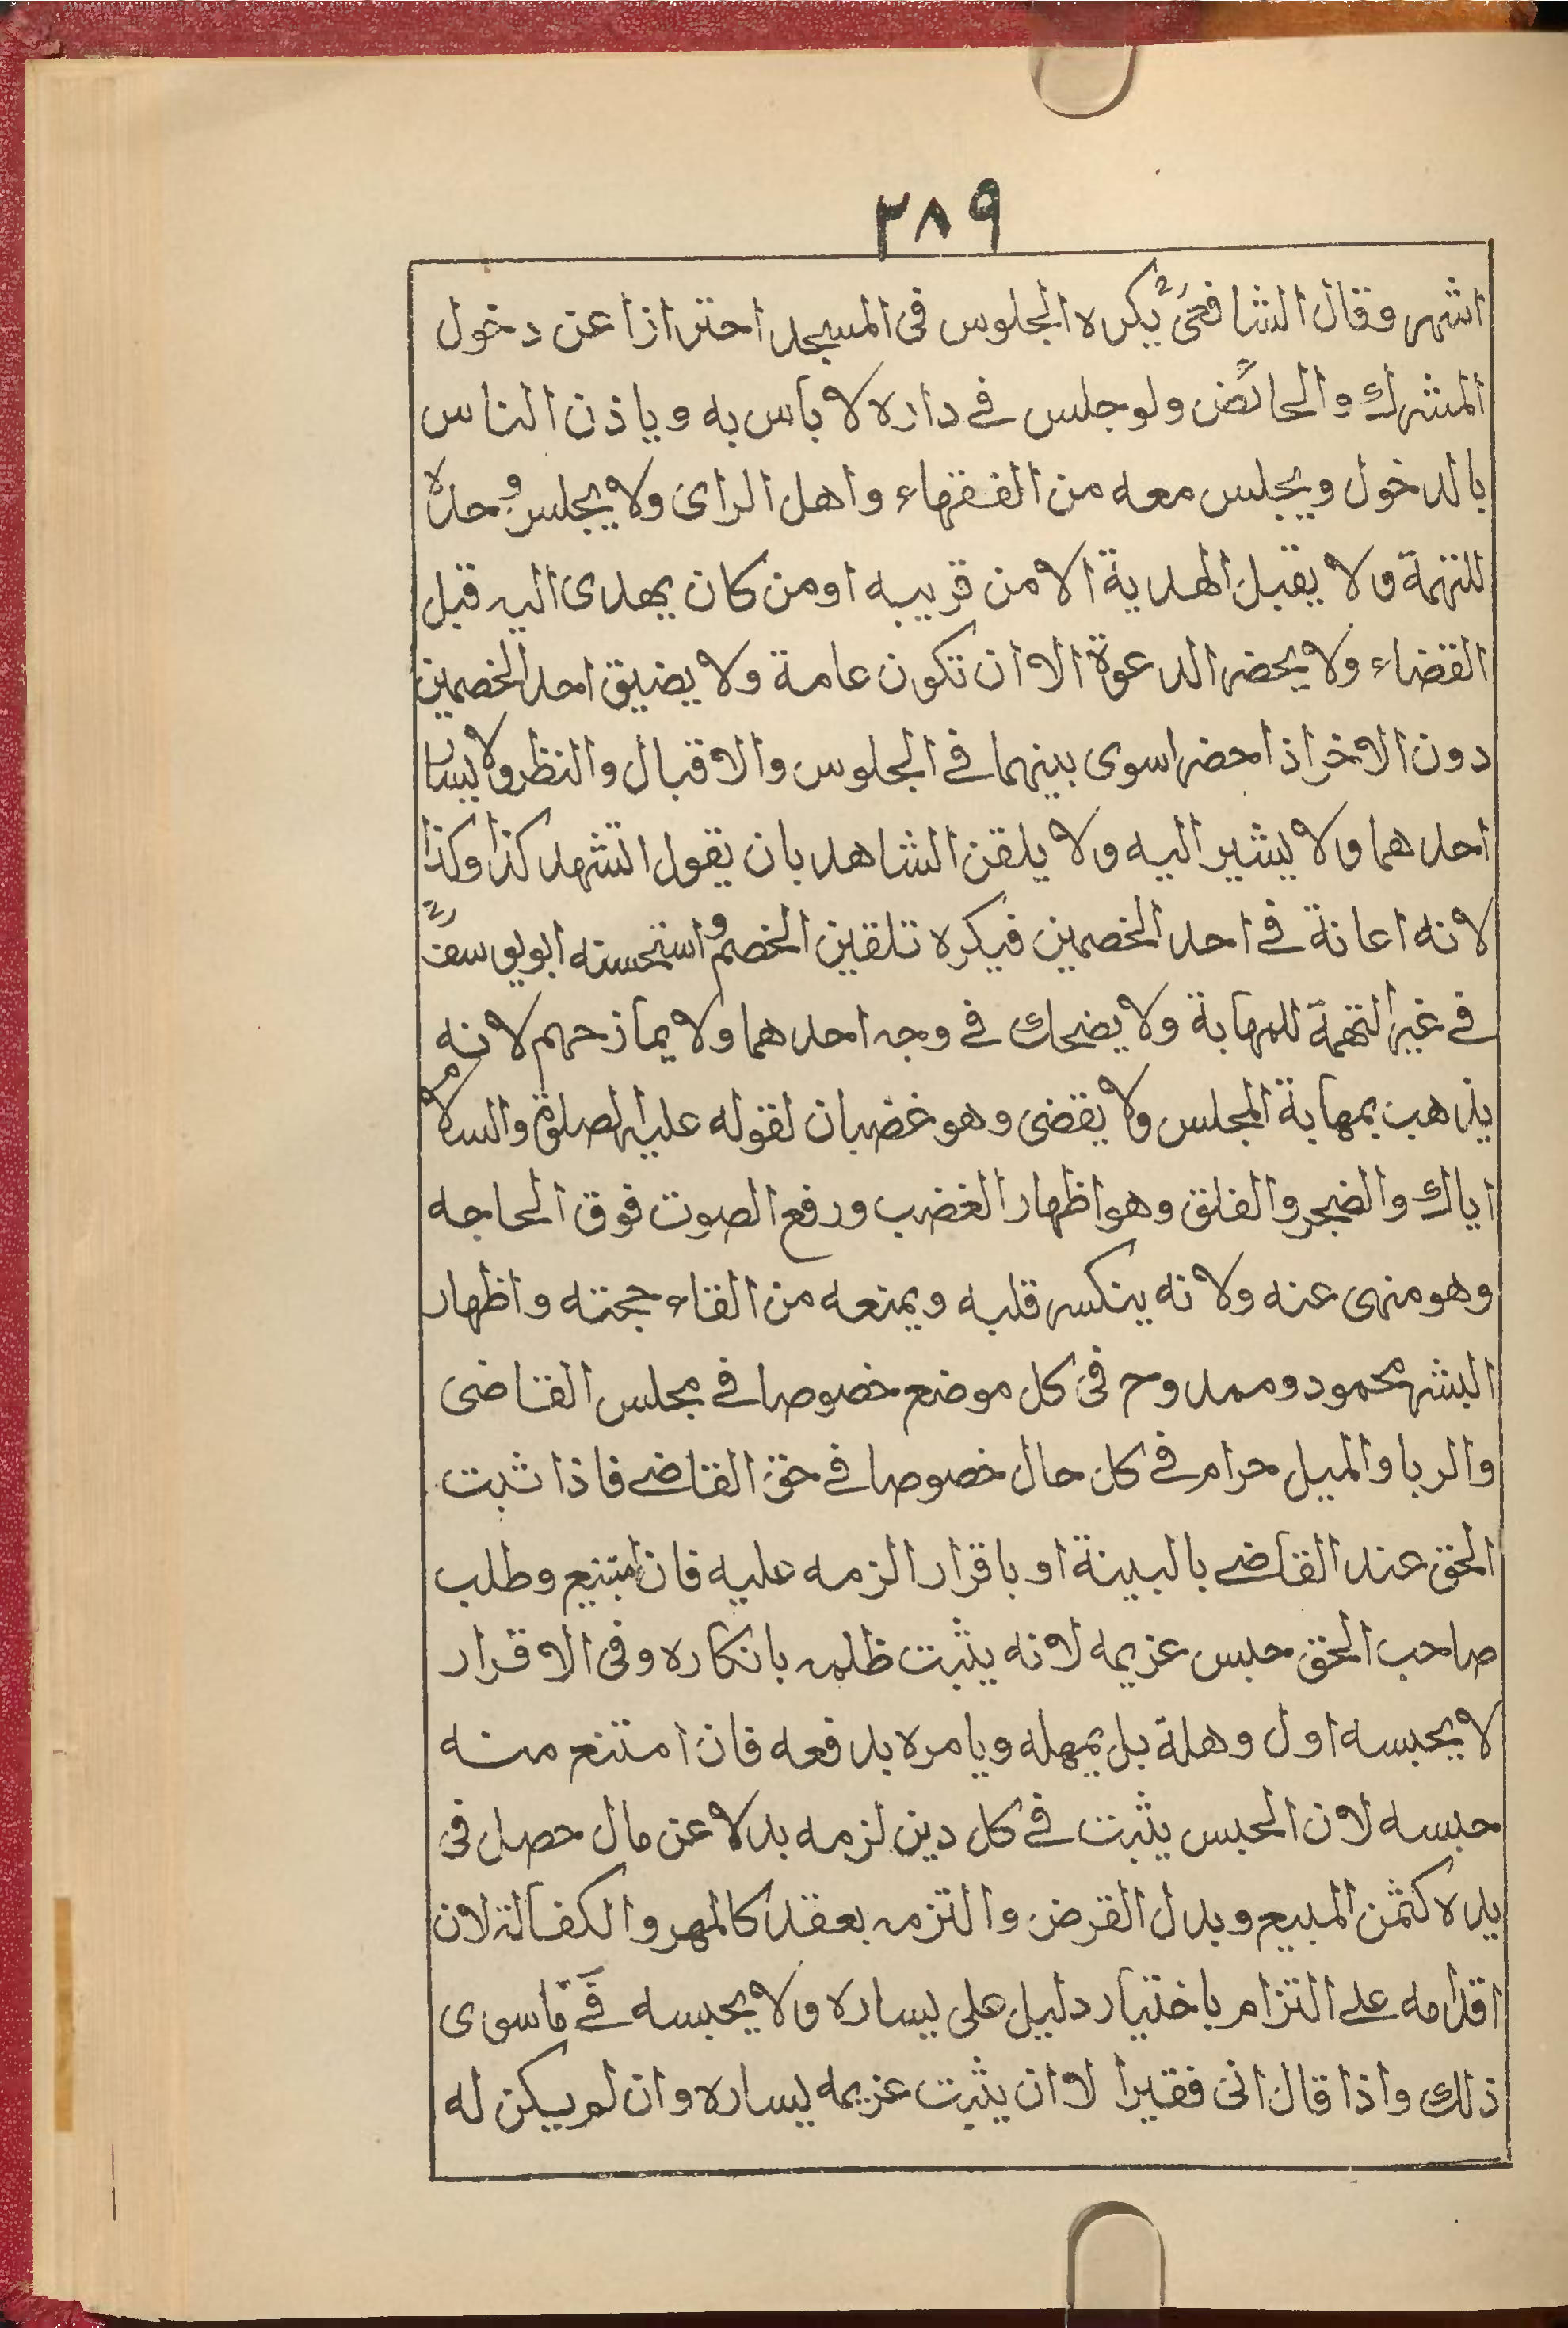 ٣٨٩
اشهر وقال الشافعىؒ يكره الجلوس فى المسجد احترازا عن دخول
المشرك والحائض ولو جلس فے داره لا باس به وياذن الناس
بالدخول ويجلس معه من الفقهاء واهل الراى ولا يجلس وحده
للتهمة ولا يقبل الهدية الا من قريبه او من كان يهدى اليه قبل
القضاء ولا يحضر الدعوة الا ان تكون عامة ولا يضيق احد الخصمين
دون الاخر اذا حضرا سوى بينهما فے الجلوس والاقبال والنظر ولا يسار
احدهما ولا يشير اليه ولا يلقن الشاهد بان يقول اتشهد كذا وكذا
لانه اعانة فے احد الخصمين فيكره تلقين الخصم واستحسنه ابويوسفؒ
فے غير التهمة للمهابة ولا يضحك فے وجه احدهما ولا يمازحهم لانه
يذهب بمهابة المجلس ولا يقضى وهو غضبان لقوله عليه الصلوة والسلام
اياك والضجر والقلق وهو اظهار الغضب ورفع الصوت فوق الحاجه
وهو منهى عنه ولانه ينكسر قلبه ويمنعه من القاء حجته واظهار
البشر محمود وممدوح فى كل موضع خصوصا فے مجلس القاضى
والربا والميل حرام فے كل حال خصوصا فے حق القاضے فاذا ثبت
الحق عند القاضے بالبينة او باقرار الزمه عليه فان امتنع وطلب
صاحب الحق حبس غريمه لانه يثبت ظلمه بانكاره وفى الاقرار
لا يحبسه اول وهلة بل يمهله ويامره بدفعه فان امتنع منه
حبسه لان الحبس يثبت فے كل دين لزمه بدلا عن مال حصل فى
يده كثمن المبيع وبدل القرض والتزمه بعقد كالمهر والكفالة لان
اقدامه علے التزام باختيار دليل على يساره ولا يحبسه فے ما سوى
ذلك واذا قال انى فقيرا لا ان يثبت غريمه يساره وان لم يكن له